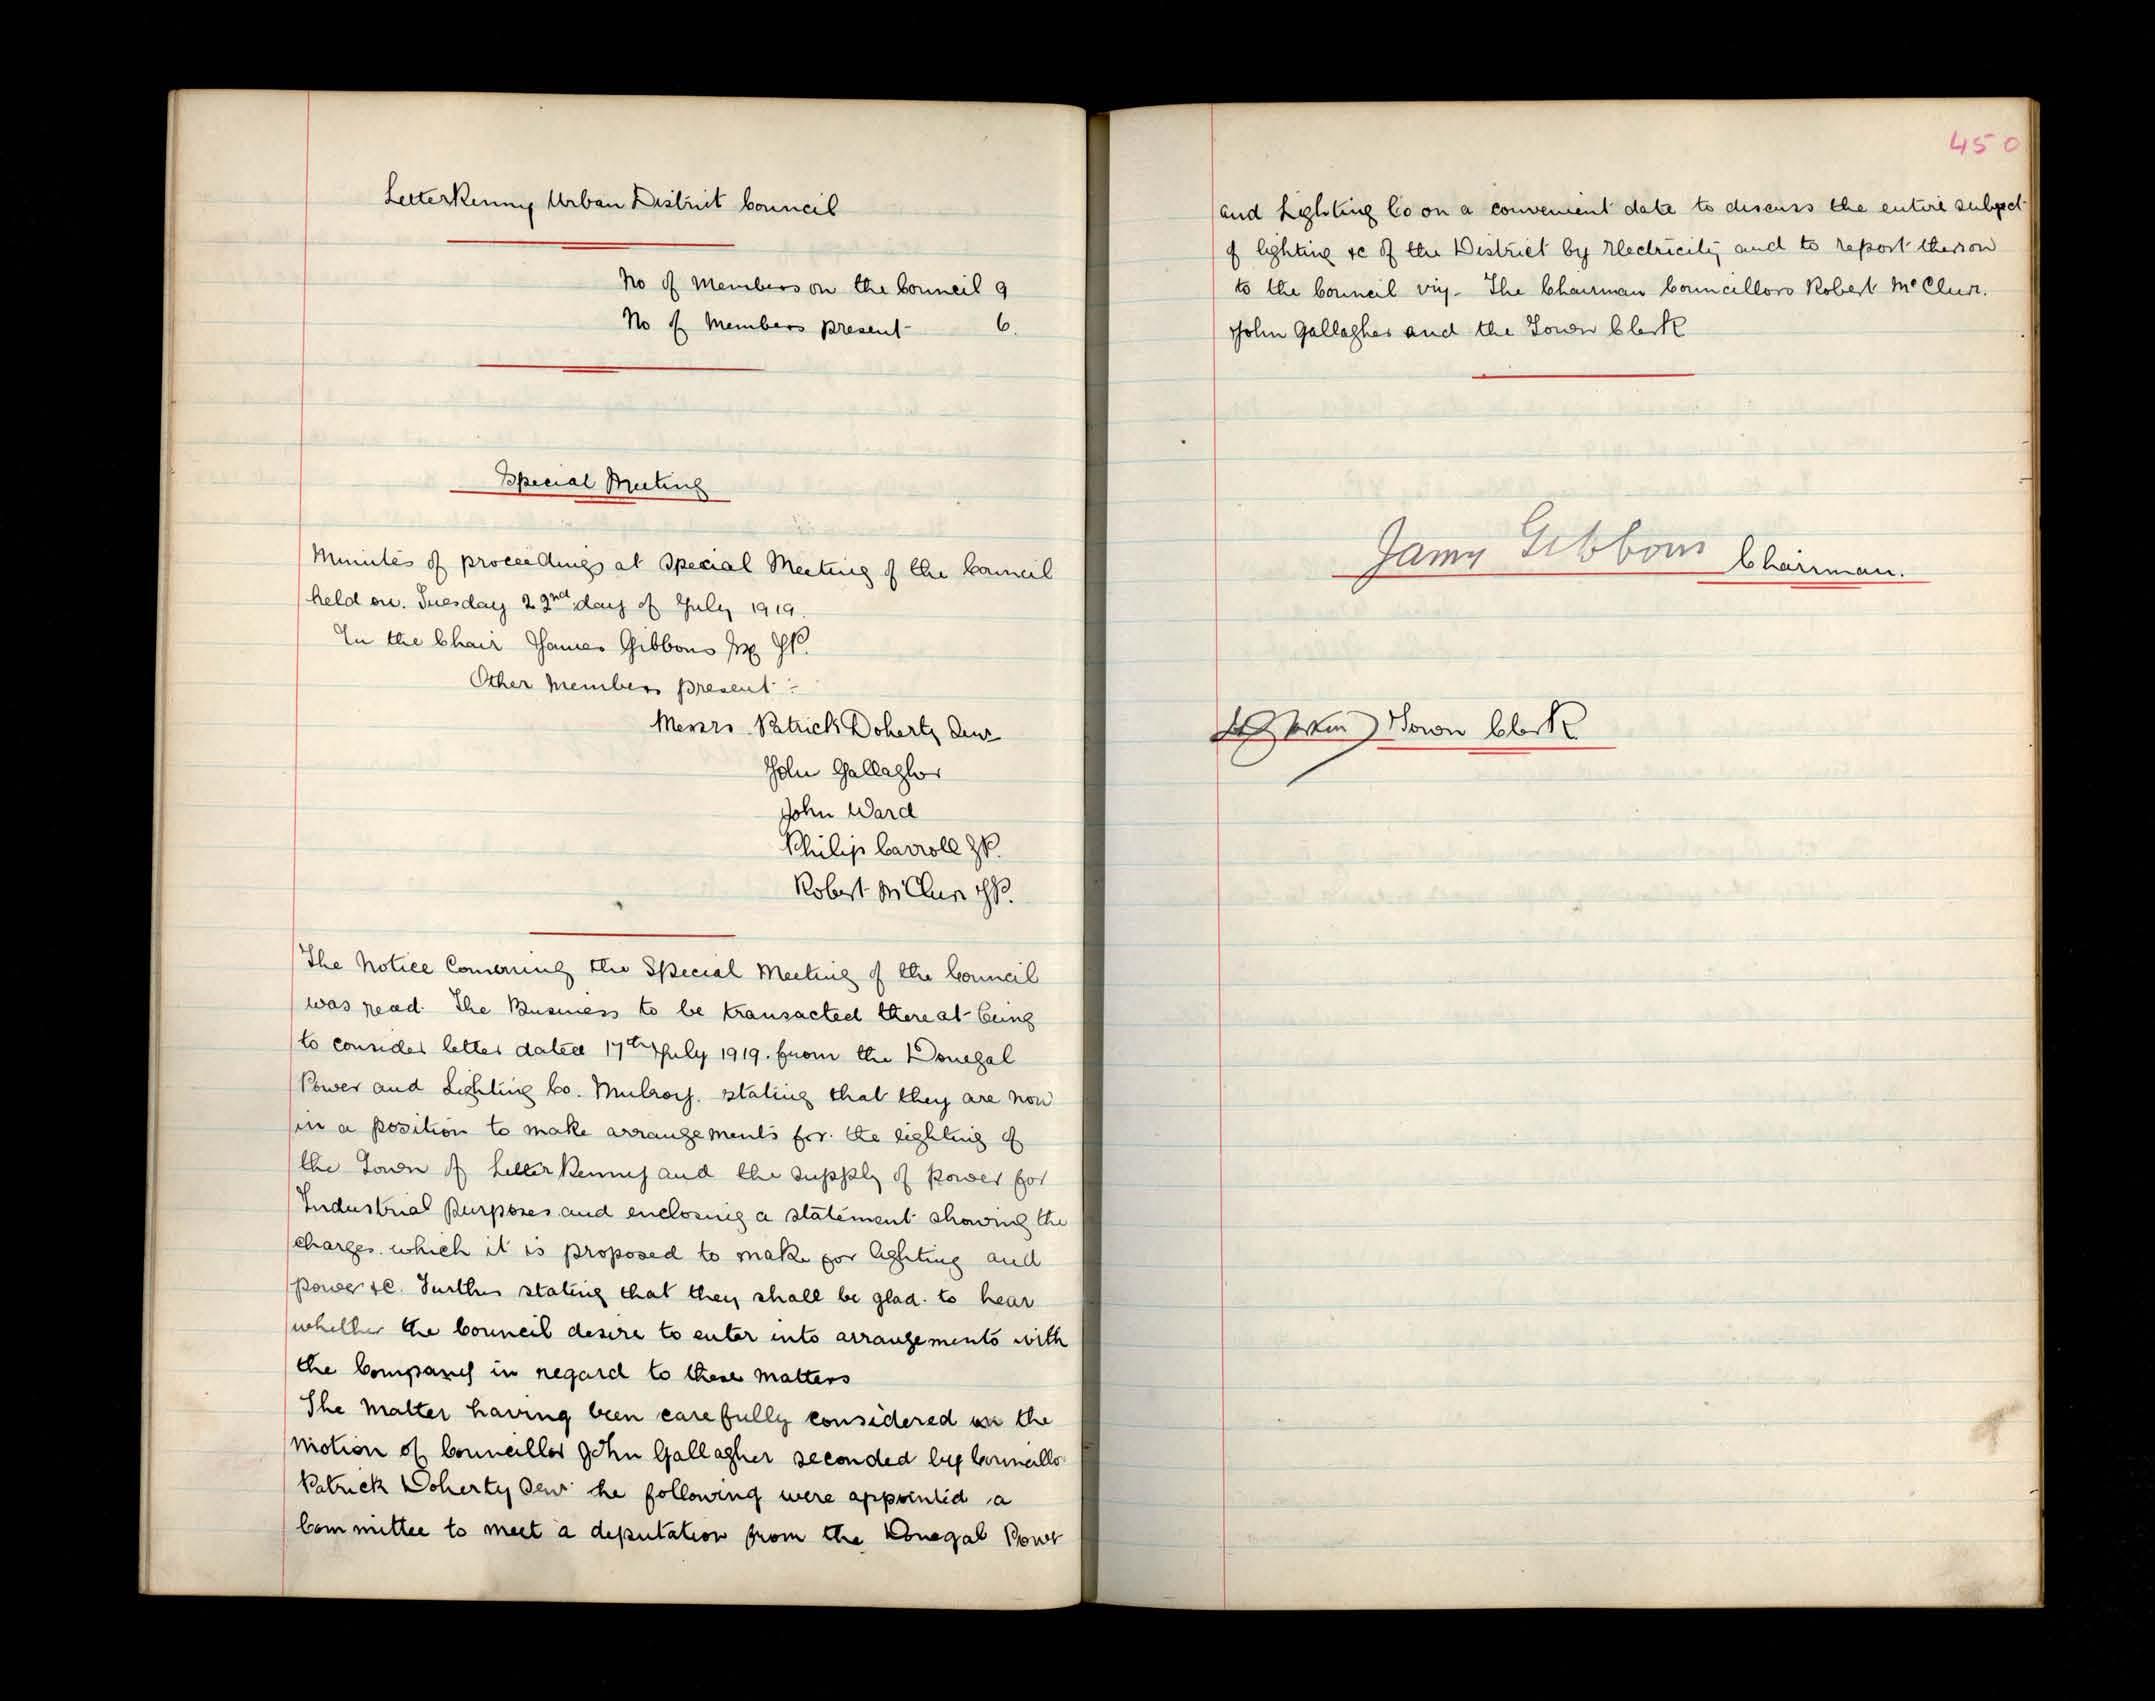 LetterKenny Urban District Council
No of Members on the Council 9
No of Members present 6.
Special Meeting
Minutes of proceedings at Special Meeting of the Council
held on. Tuesday 22nd day of July 1919.
In the Chair James Gibbons JP.
Other Members present :-
Messrs. Patrick Doherty Senr
John Gallagher
John Ward
Philip Carroll JP.
Robert McClure JP.
The Notice Convening the Special Meeting of the Council
was read. The Business to be transacted thereat being
to consider letter dated 17th July 1919. from the Donegal
Power and Lighting Co. Mulroy. stating that they are now
in a position to make arrangements for. the lighting of
the Town of LetterKenny and the supply of power for
Industrial purposes and enclosing a statement showing the
charges. which it is proposed to make for lighting and
power &c. Further stating that they shall be glad. to hear
whether the Council desire to enter into arrangements with
the Company in regard to these matters
The Matter having been carefully considered on the
motion of Councillor John Gallagher seconded by Councillo
Patrick Doherty Senr he following were appointed a
Committee to meet a deputation from the Donegal Power
450
and Lighting Co on a convenient date to discuss the entire subject
of lighting &c of the District by Electricity and to report thereon
to the Council viz. The Chairman Councillors Robert McClure.
John Gallagher and the Town Clerk
James Gibbons Chairman.
Town Clerk